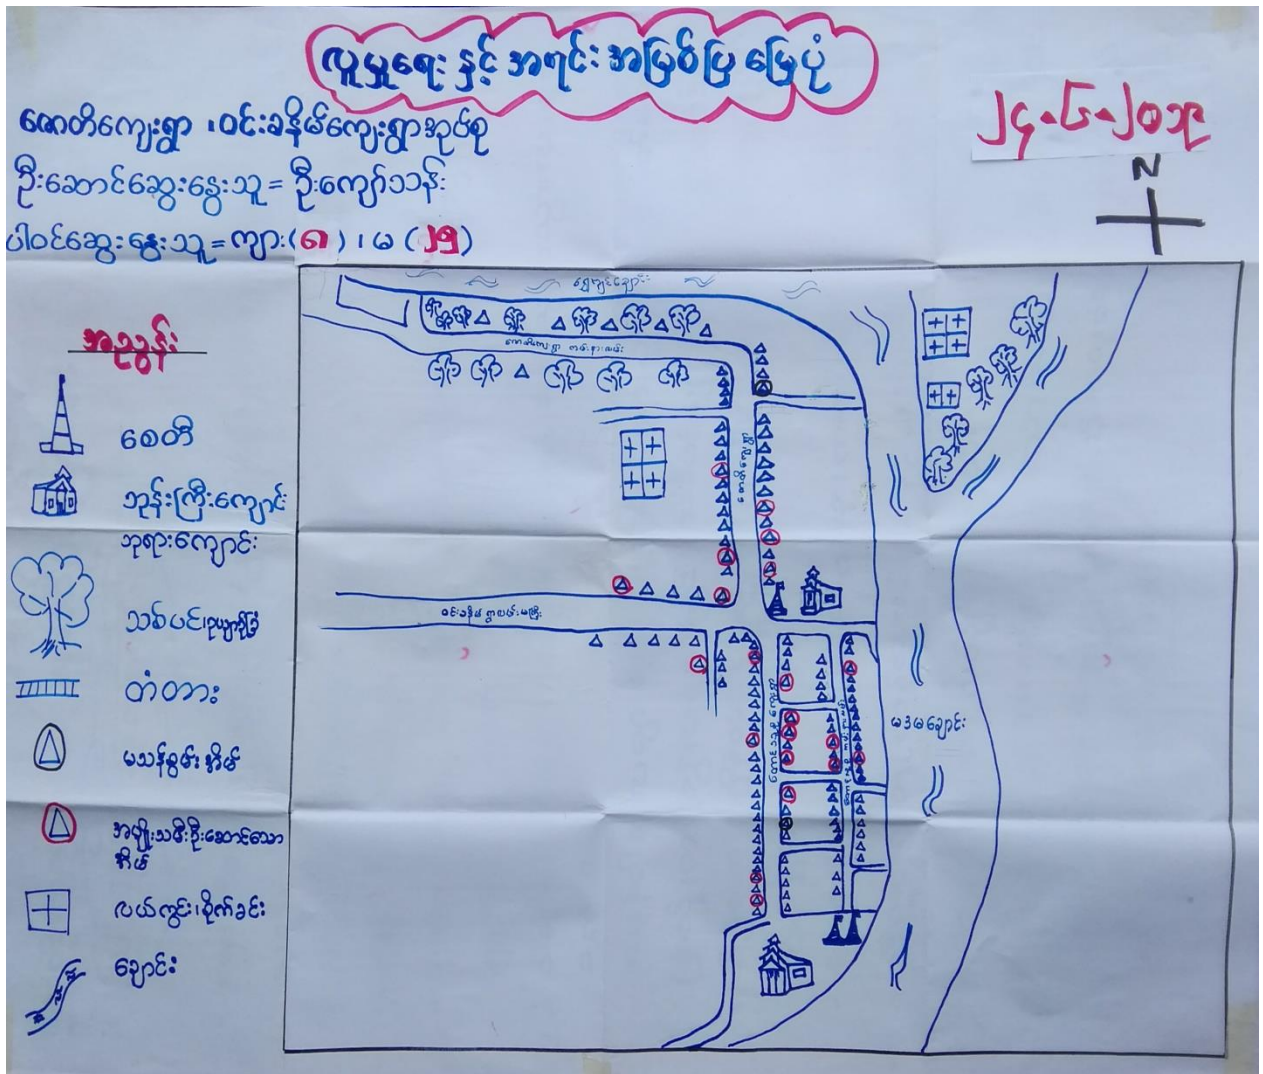 လူမှုရေး နှင့် အရင်းအမြစ်ပြ မြေပုံ
၂၄-၆-၂၀၁၉
ဇောတိကျေးရွာ ၊ ဝင်းခနိမ်ကျေးရွာအုပ်စု
N
ဦးဆောင်ဆွေးနွေးသူ = ဦးကျော်သန်း
ပါဝင်ဆွေးနွေးသူ = ကျား (၈) ၊ မ (၂၅)
အညွှန်း
စေတီ
ဘုန်းကြီးကျောင်း
ဘုရားကျောင်း
သစ်ပင်၊ဥယျာဉ်ခြံ
တံတား
မသန်စွမ်းအိမ်
အမျိုးသမီးဦးဆောင်သော
အိမ်
လယ်ကွင်း၊စိုက်ခင်း
ချောင်း
ဝင်းခနိမ် ရွာလမ်းမကြီး
မဒမချောင်း